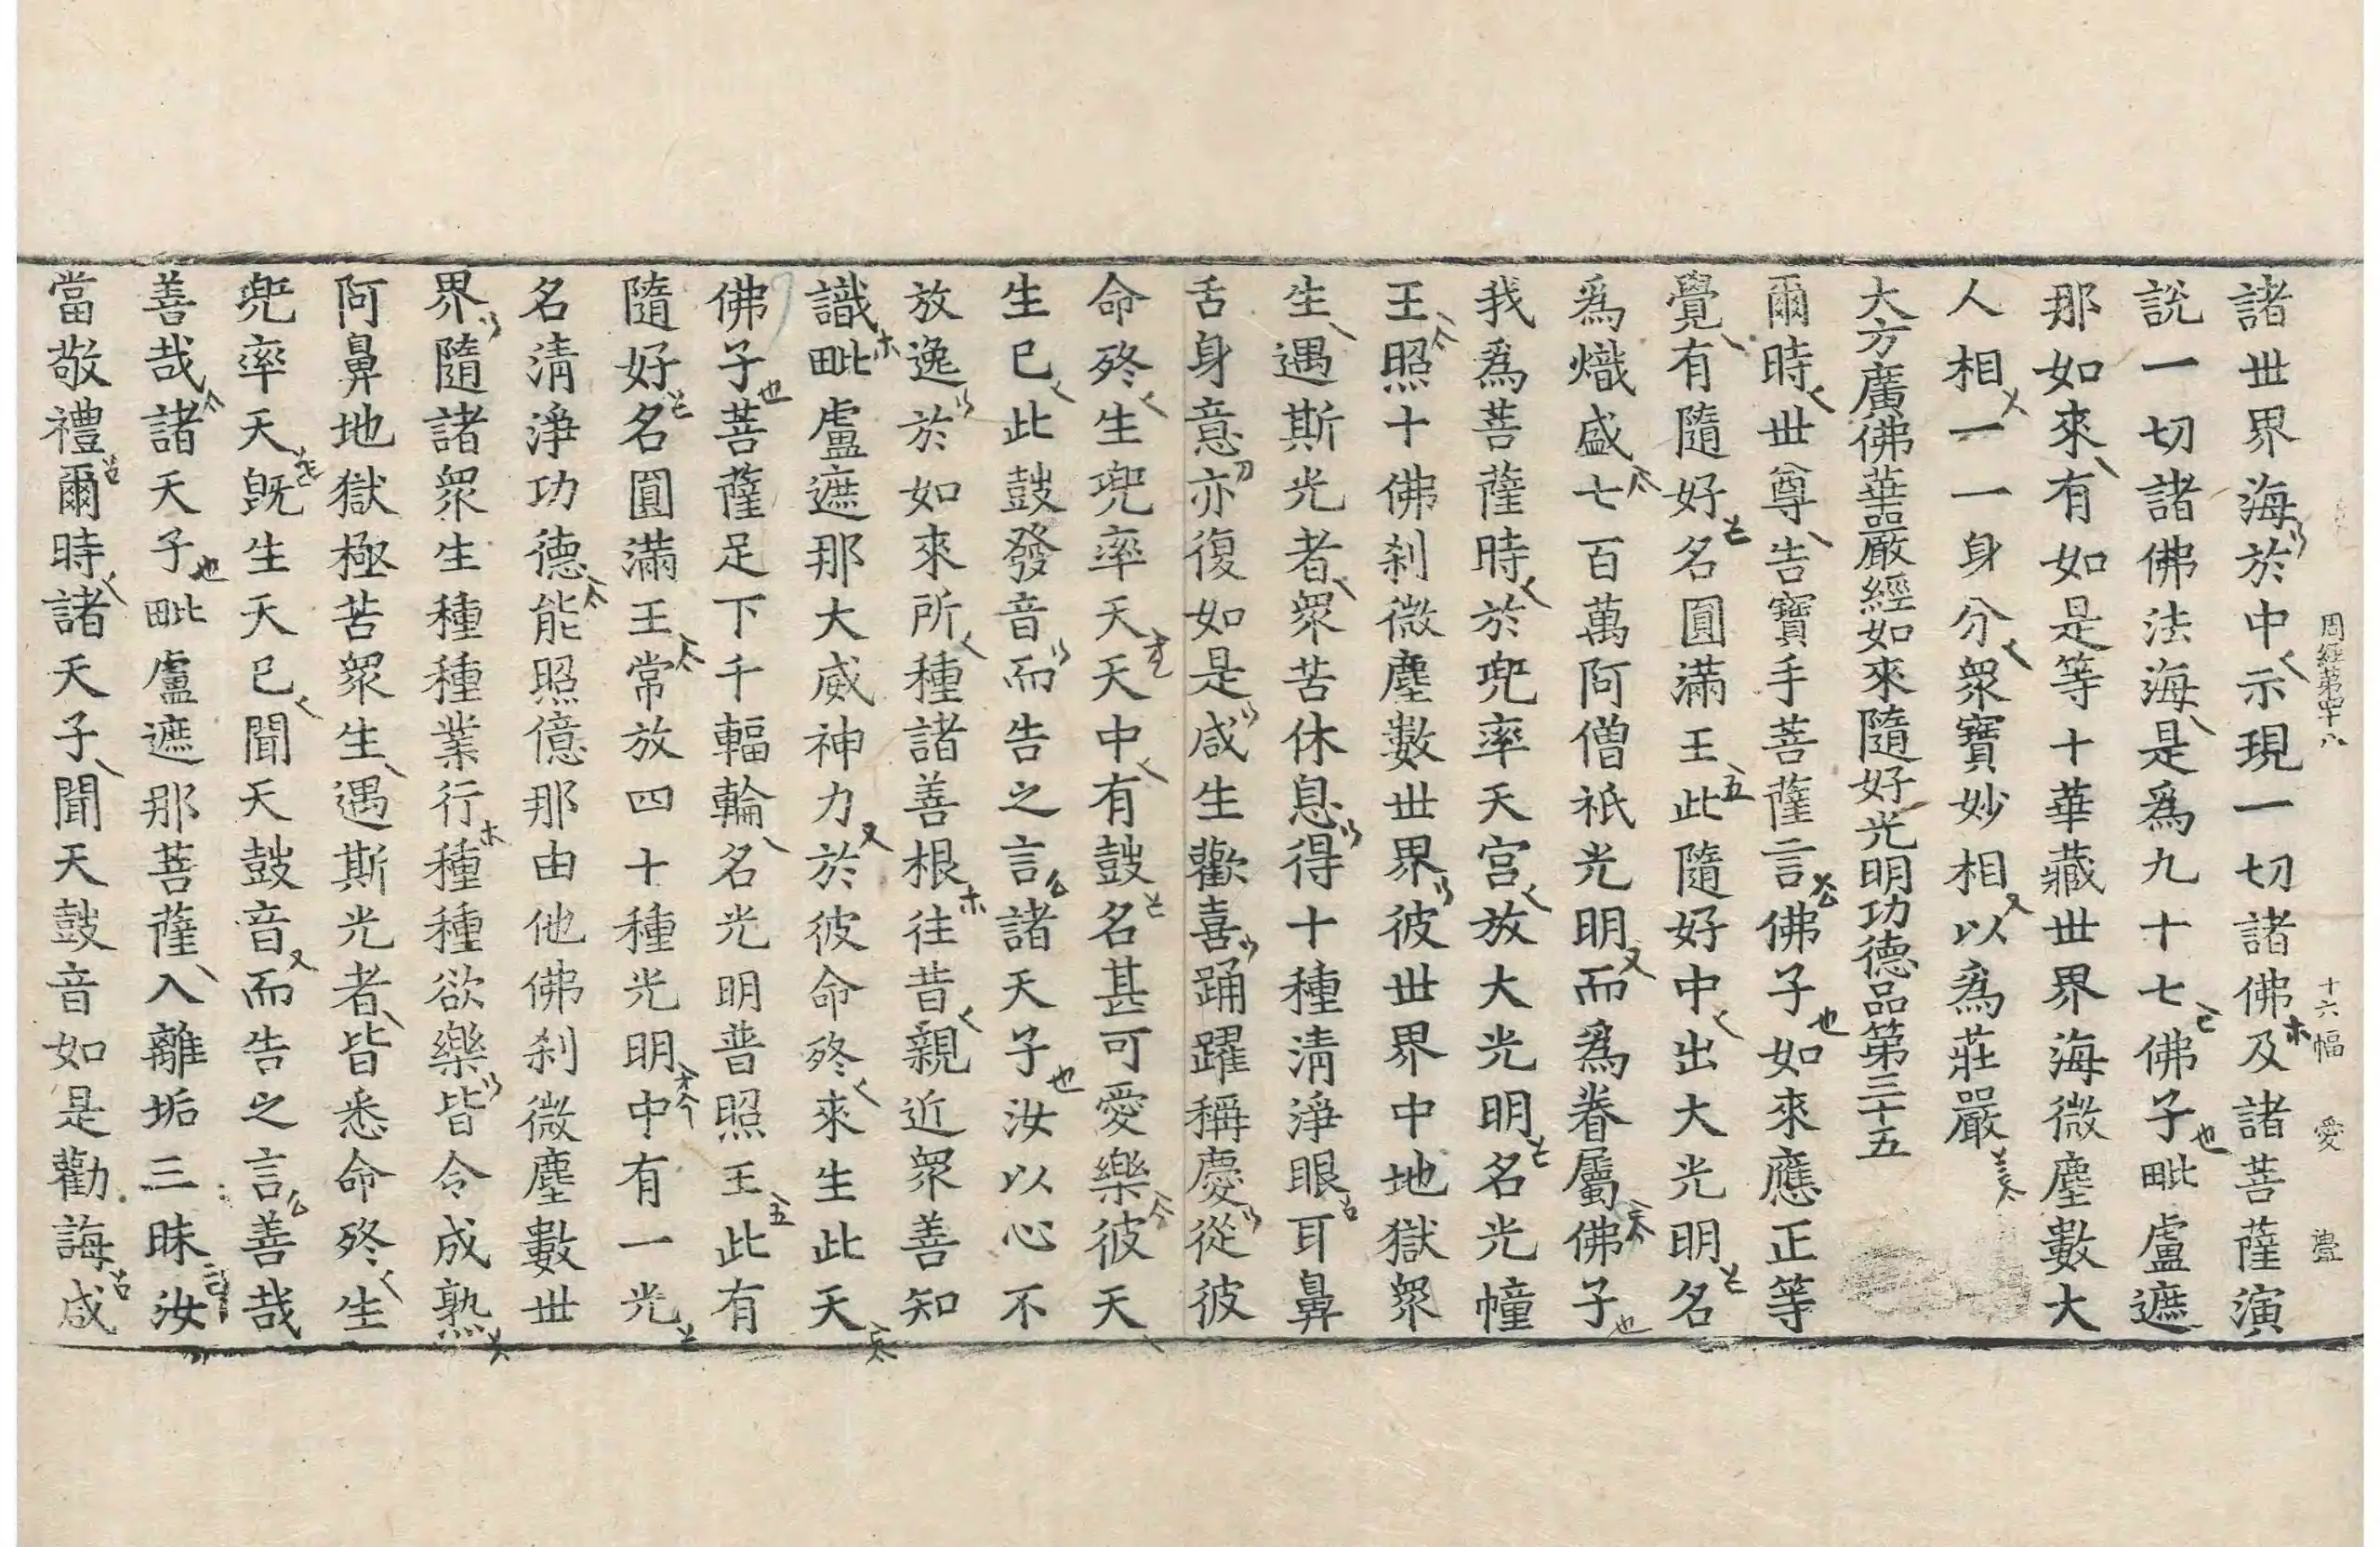 周經第四十八 十六幅 愛
諸世界海於中示現一切諸佛及諸菩薩演
說一切諸佛法海是爲九十七佛子毗盧遮
那如來有如是等十華藏世界海微塵數大
人相一一身分衆寶妙相以爲莊嚴
大方廣佛華嚴經如來隨好光明功德品第三十五
爾時世尊告寶手菩薩言佛子如來應正等
覺有隨好名圓滿王此隨好中出大光明名
爲熾盛七百萬阿僧祇光明而爲眷屬佛子
我爲菩薩時於兜率天宮放大光明名光幢
王照十佛刹微塵數世界彼世界中地獄衆
生遇斯光者衆苦休息得十種清淨眼耳鼻
舌身意亦復如是咸生歡喜踊躍稱慶從彼
命終生兜率天天中有鼓名甚可愛樂彼天
生已此鼓發音而告之言諸天子汝以心不
放逸於如來所種諸善根往昔親近衆善知
識毗盧遮那大威神力於彼命終來生此天
佛子菩薩足下千輻輪名光明普照王此有
隨好名圓滿王常放四十種光明中有一光
名清淨功德能照億那由他佛刹微塵數世
界隨諸衆生種種業行種種欲樂皆令成熟
阿鼻地獄極苦衆生遇斯光者皆悉命終生
兜率天旣生天已聞天鼓音而告之言善哉
善哉諸天子毗盧遮那菩薩入離垢三昧汝
當敬禮爾時諸天子聞天鼓音如是勸誨咸